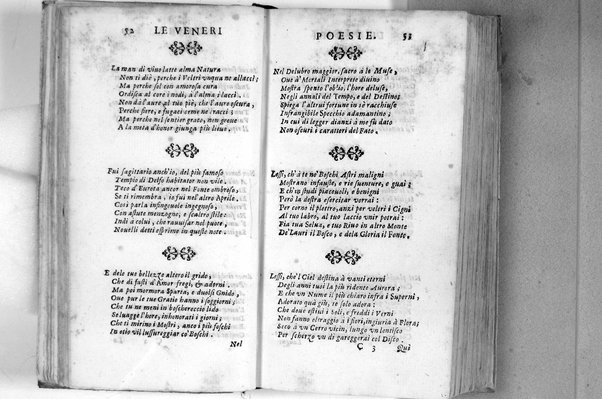 52 LE VENERI
La man di vivo latte alma Natura
Non ti diè, perche i Veltri unqua ne allacci;
Ma perche sol con amorosa cura
Ordisca al core i nodi, a l'alma i lacci.
Non dà l'auro al tuo piè, che l'auro oscura,
Perche fiere, e fugaci orme ne tracci;
Ma perche nel sentier grato, non greve
A la meta d'honor giunga più lieve.
Fui sagittario anch'io, del più famoso
Tempio di Delfo habitator non vile.
Teco d'Eurota ancor nel Fonte ombroso,
Se ti rimembra, io fui nel altro Aprile.
Così parla infingevole ingegnoso,
Con astute menzogne, e scaltro stile.
Indi à colui, che ravvisar nol puote,
Novelli detti esprimo in queste note.
E dele tue bellezze altero il grido,
Che di fusti d'Amor fregi, & adorni
Ma poi mormora Sparta, e duolsi Guido,
Ove pur le tue Gratie hanno i soggiorni;
Che tu ne meni in boschereccio lido
Selvagge l'hore, inhonorati i giorni;
Che ti mirino i Mostri, anco i più foschi
In otio vil lussureggiar co' Boschi.
Nel
POESIE. 53
Nel Delubro maggior, sacro à le Muse,
Ove à Mortali Interprete divino
Mostra spento l'oblio, l'hore deluse,
Negli annali del Tempo, e del Destino;
Spiega l'altrui fortune in sè racchiuse
Infrangibile Specchio adamantino;
In cui di legger dianzi à me fù dato
Non oscuri i caratteri del Fato.
Lessi, ch'à te ne' Boschi Astri maligni
Mostrano infauste, e rie sventure, e guai;
E ch'in studi piacevoli, e benigni
Però la destra esercitar vorrai:
Per corno il plettro, anzi per veltri i Cigni
Al tuo labro, al tuo laccio unir potrai:
Fia tua Selva, e tuo Rivo in altro Monte
De' Lauri il Bosco, e dela Gloria il Fonte.
Lessi, che'l Ciel destina à vanti eterni
Degli anni tuoi la più ridente Aurora;
E che un Nume il più chiaro infra i Superni,
Adorato quà giù, te solo adora:
Che dove estivi i Soli, e freddi i Verni
Non fanno oltraggio a i fiori, ingiuria à Flora;
Seco à un Cervo vicin, lungo un lentisco
Per scherzo un dì gareggerai col Disco.
C 3 Qui